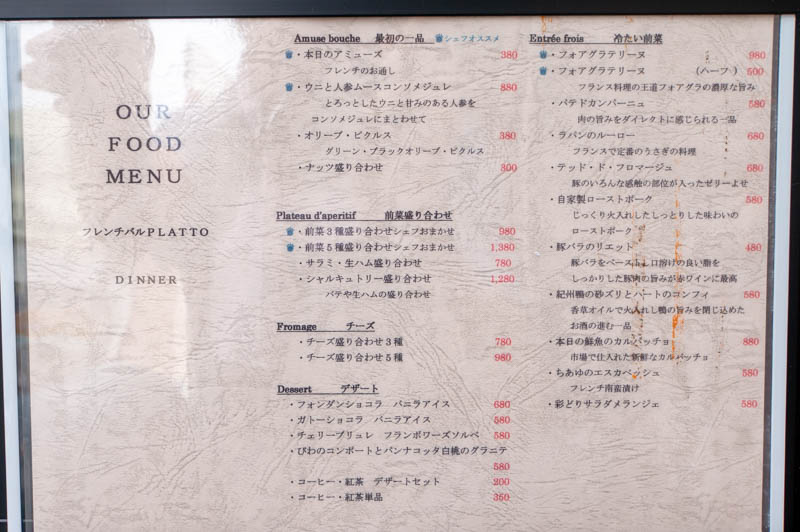 OUR
FOOD
MENU
フレンチバルPLATTO
DINNER
Amuse bouche 最初の一品 シェフオススメ
・本日のアミューズ 380
フレンチのお通し
・ウニと人参ムースコンソメジュレ 880
とろっとしたウニと甘みのある人参を
コンソメジュレにまとわせて
・オリーブ・ピクルス 380
グリーン・ブラックオリーブ・ピクルス
・ナッツ盛り合わせ 300
Plateau d'aperitif 前菜盛り合わせ
・前菜3種盛り合わせシェフおまかせ 980
・前菜5種盛り合わせシェフおまかせ 1,380
・サラミ・生ハム盛り合わせ 780
・シャルキュトリー盛り合わせ 1,280
パテや生ハムの盛り合わせ
Fromage チーズ
・チーズ盛り合わせ3種 780
・チーズ盛り合わせ5種 980
Dessert デザート
・フォンダンショコラ バニラアイス 680
・ガトーショコラ バニラアイス 580
・チェリーブリュレ フランボワーズソルベ 580
・びわのコンポートとパンナコッタ白桃のグラニテ
580
・コーヒー・紅茶 デザートセット 200
・コーヒー・紅茶単品 350
Entrée frois 冷たい前菜
・フォアグラテリーヌ 980
・フォアグラテリーヌ (ハーフ) 500
フランス料理の王道フォアグラの濃厚な旨み
・パテドカンパーニュ 580
肉の旨みをダイレクトに感じられる一品
・ラパンのルーロー 680
フランスで定番のうさぎの料理
・テッド・ド・フロマージュ 680
豚のいろんな感触の部位が入ったゼリーよせ
・自家製ローストポーク 580
じっくり火入れしたしっとりした味わいの
ローストポーク
・豚バラのリエット 480
豚バラをペーストし口溶けの良い脂を
しっかりした豚肉の旨みが赤ワインに最高
・紀州鴨の砂ズリとハートのコンフィ 580
香草オイルで火入れし鴨の旨みを閉じ込めた
お酒の進む一品
・本日の鮮魚のカルパッチョ 880
市場で仕入れた新鮮なカルパッチョ
・ちあゆのエスカベッシュ 580
フレンチ南蛮漬け
・彩どりサラダメランジェ 580